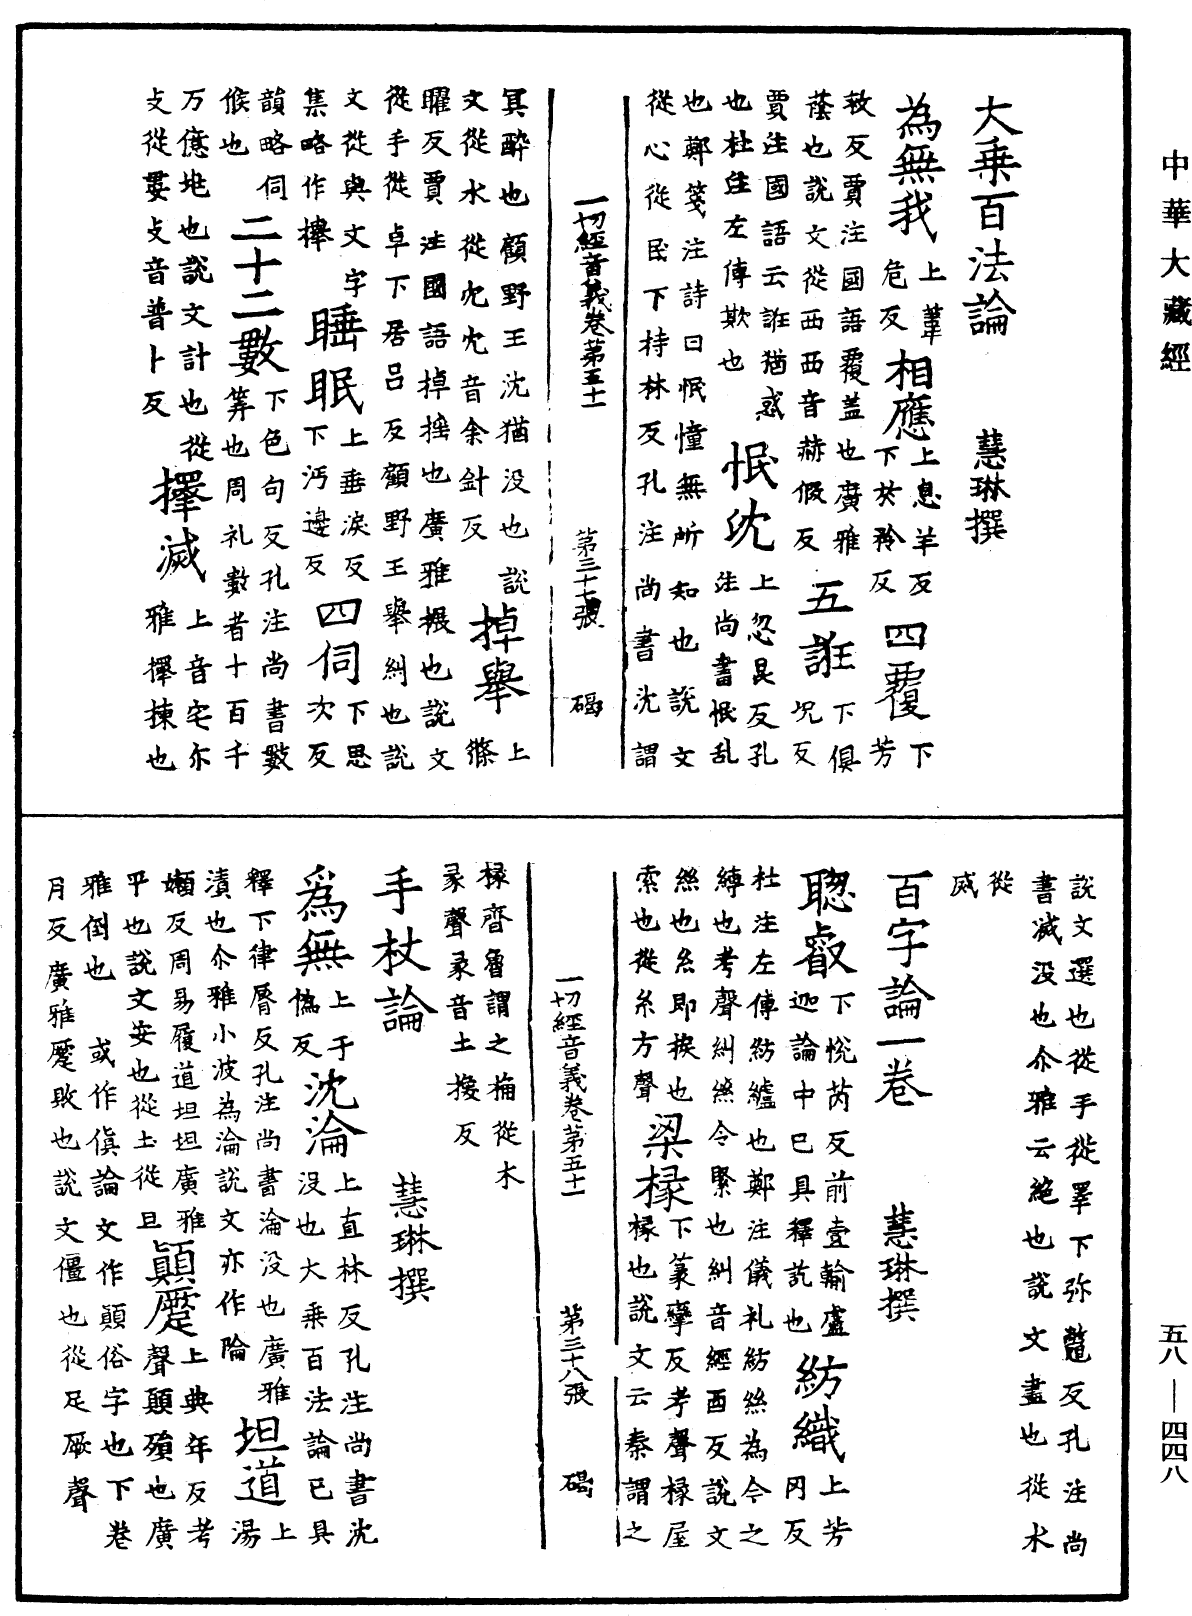 中華大藏經
大乘百法論　慧琳撰
為無我上葦危反相應上息羊反下於矜反四覆下芳
救反賈注國語覆蓋也廣雅蔭也說文從襾襾音赫假反五誑下俱況反
賈注國語云誑猶惑也杜注左傳欺也惛沈上忽昆反孔注尚書惛乱
也鄭箋注詩曰惛憧無所知也說文從心從民下持林反孔注尚書沈謂
一切經音義卷第五十一　第三十七張　碣
冥醉也顧野王沈猶没也說文從水從冘冘音余針反掉舉上條
曜反賈注國語掉搖也廣雅振也說文從手從卓下居呂反顧野王舉糾也說
文從與文字集略作攑睡眠上垂淚反下沔邊反四伺下思次反
韻略伺候也二十二數下色句反孔注尚書數筭也周礼數者十百千
万億地也說文計也從攴從婁攴音普卜反擇滅上音宅尒雅擇揀也
說文選也從手從睪下弥鼈反孔注尚書滅没也尒雅云絕也說文盡也從水
從烕
百字論一卷　慧琳撰
聦叡下恱芮反前壹輸盧迦論中已具釋訖也紡織上芳冈反
杜注左傳紡纑也鄭注儀礼紡絲為今之縛也考聲糾絲令緊也糾音經酉反說文
絲也糸即挨也索也從糸方聲梁椽下篆攣反考聲椽屋椽也說文云秦謂之
椽齊魯謂之桷從木彖聲彖音土掾反
一切經音義卷第五十一　第三十八張　碣
手杖論　慧琳撰
爲無上于僞反沈淪上直林反孔注尚書沈没也大乘百法論已具
釋下律脣反孔注尚書淪没也廣雅漬也尒雅小波為淪說文亦作陯坦道上湯
嬾反周易履道坦坦廣雅平也說文安也從土從旦顛蹷上典年反考聲顛殞也廣
雅倒也　或作傎論文作顚俗字也下卷月反廣雅蹷敗也說文僵也從足厥聲
五八—四四八